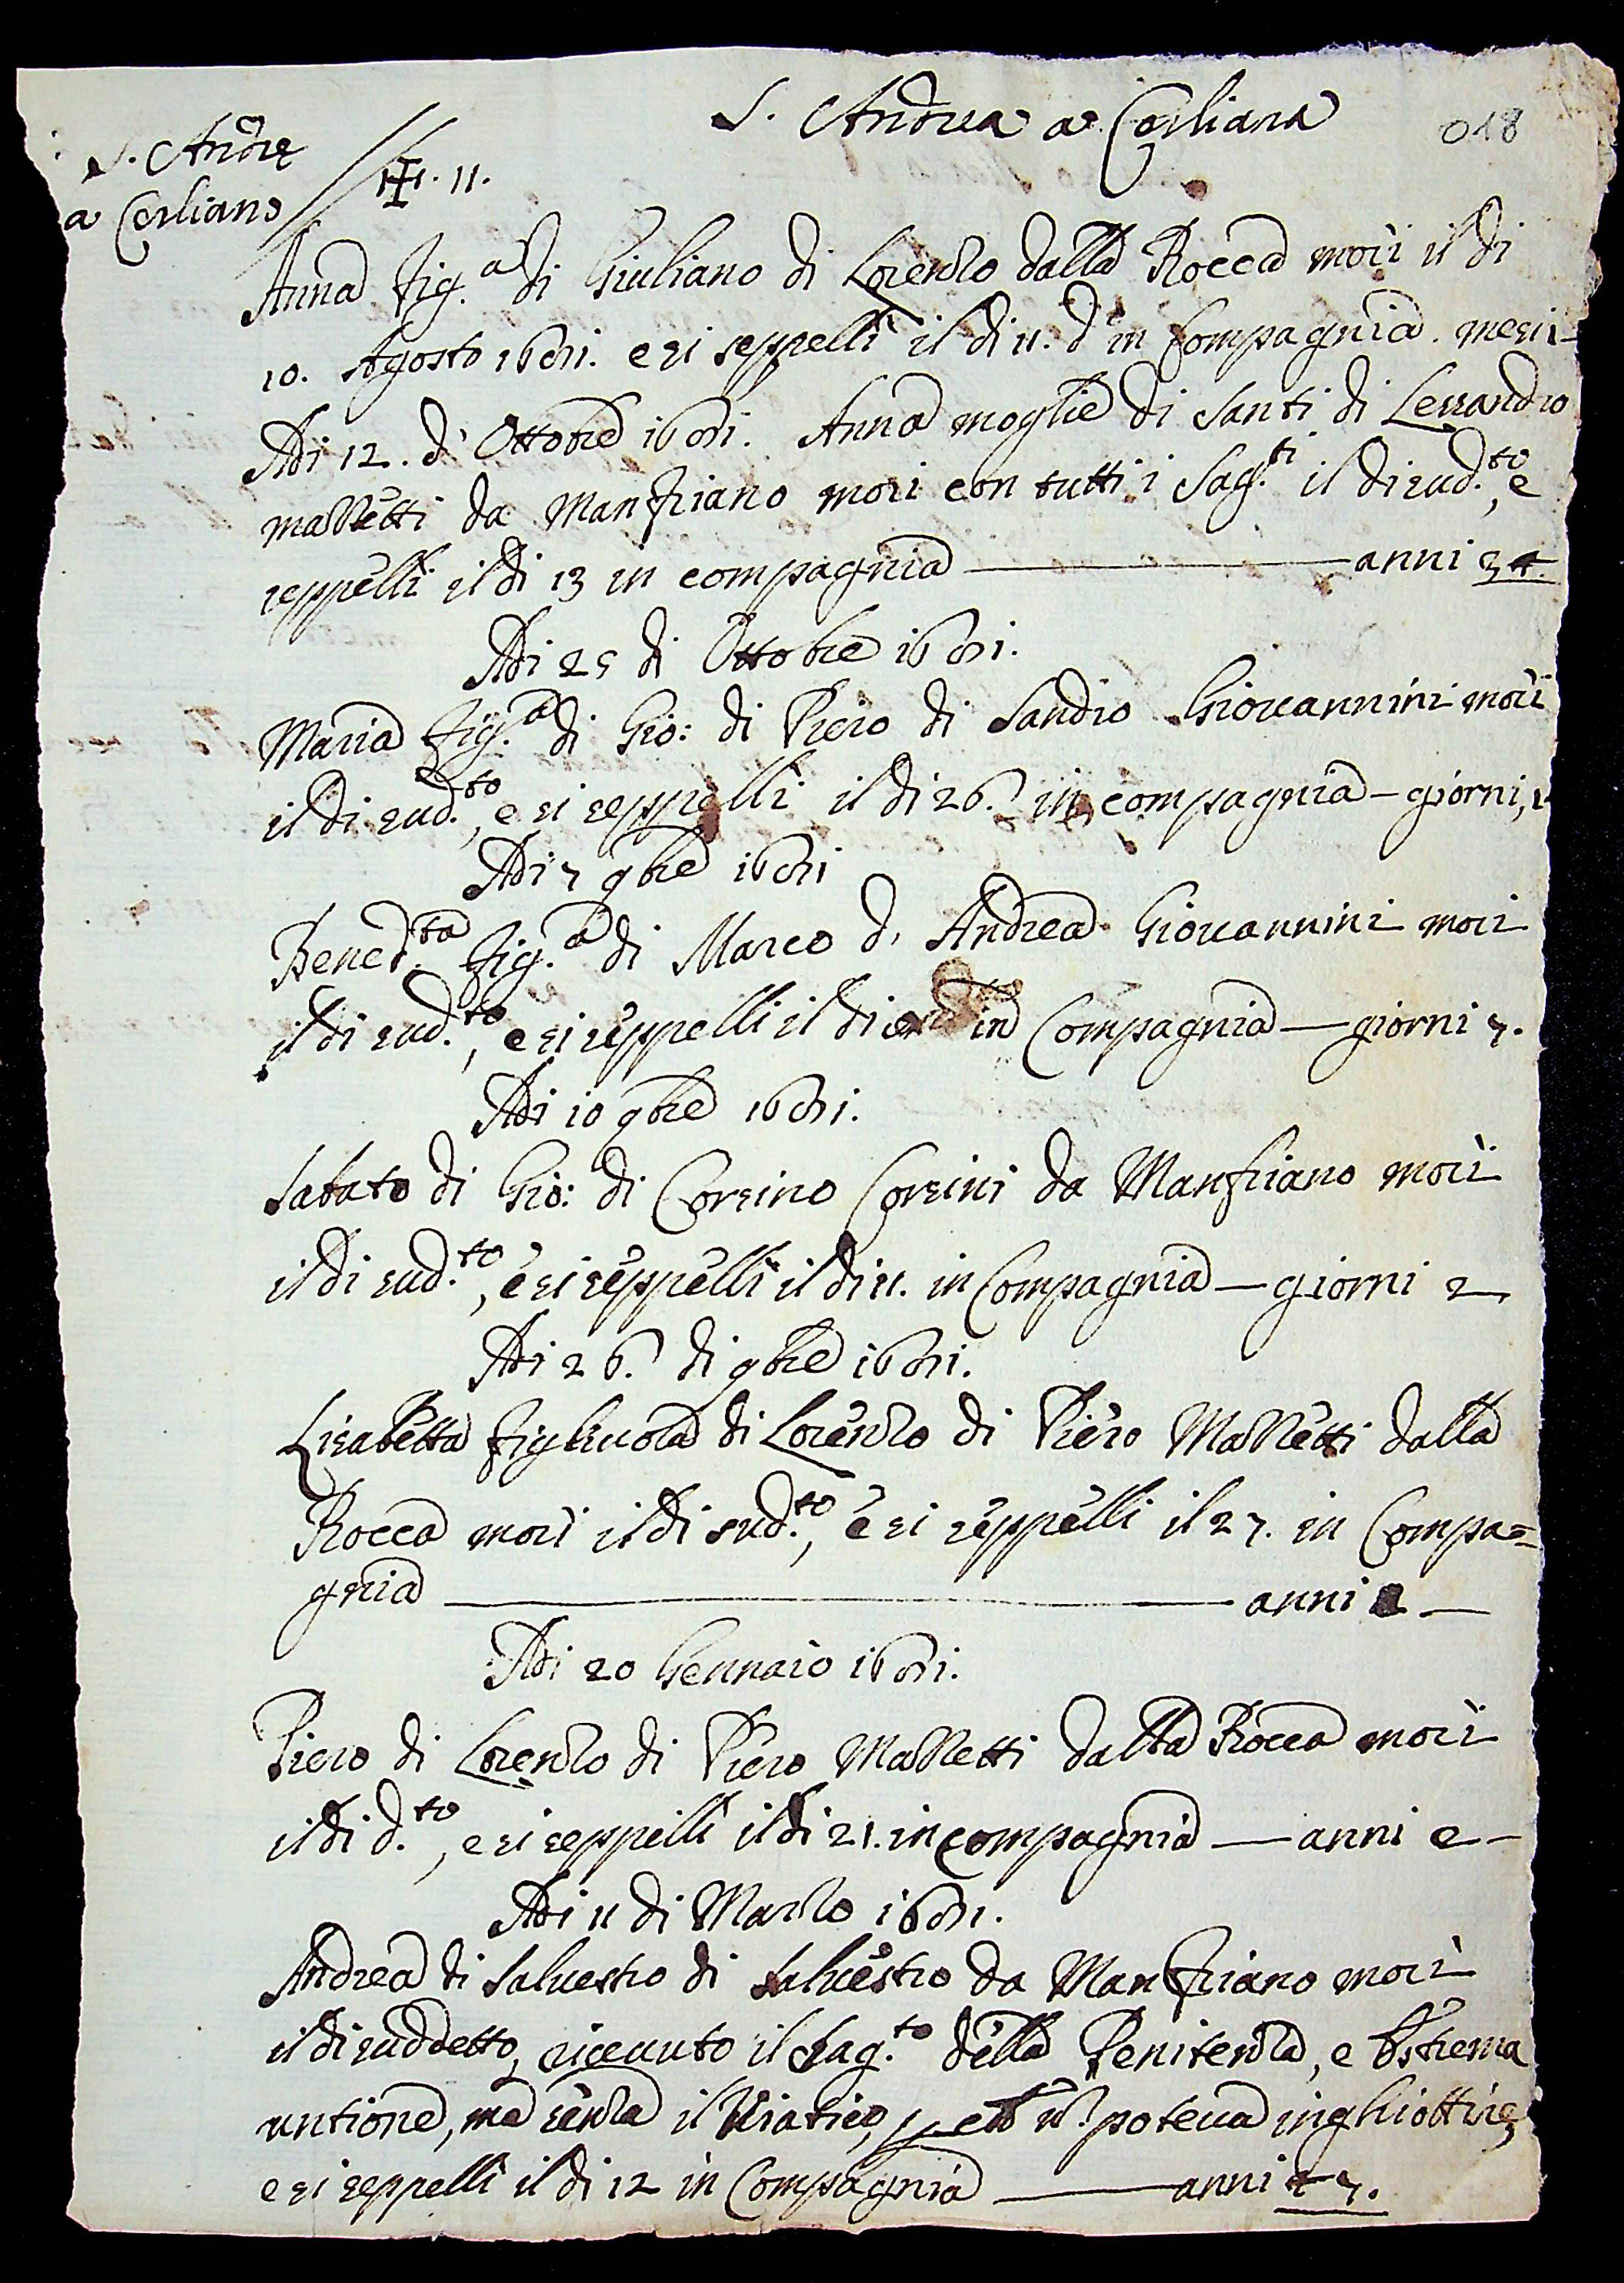 S. Andrea a Cerliana
018
S. Andrę
a Cerliano
11.
Anna fig.a di Giuliano di Lorenzo dalla Rocca morì il di
10. Agosto 1691. e si seppellì il di 11. d.o in Compagnia. mesi 1-
Adi 12. d'Ottobre 1691. Anna moglie di Santi di Lessandro
mazzetti da Manfriano morì con tutti i Sag.ti il di sud.to, e
seppellì il di 13 in compagnia — anni 34.
Adi 25 di Ottobre 1691.
Maria fig.a di Gio: di Piero di Sandro Giovannini morì
il di sud.to, e si seppellì il di 26. in compagnia — giorni
Adi 7 9bre 1691
Bened.ta fig.a di Marco d'Andrea Giovannini morì
il di sud.to, e si seppellì il di in Compagnia — giorni 7.
Adi 10 9bre 1691.
Sabato di Gio: di Corsino Corsini da Manfriano morì
il di sud.to, e si seppellì il di 11. in Compagnia — giorni 2
Adi 26. di 9bre 1691.
Lisabetta figliuola di Lorenzo di Piero Mazzetti dalla
Rocca morì il di sud.to, e si seppellì il 27. in Compa=
gnia — anni
Adi 20 Gennaio 1691.
Piero di Lorenzo di Piero Mazzetti dalla Rocca morì
il di d.to, e si seppillì il di 21. in compagnia — anni
Adi 11 di Marzo 1691.
Andrea di Salvestro di Salvestro da Manfriano morì
il di suddetto, riceuuto il Sag.to della Penitenza, e Estrema
untione, ma senza il Viatico, poteua inghiottire,
e si seppellì il di 12 in Compagnia — anni 47.